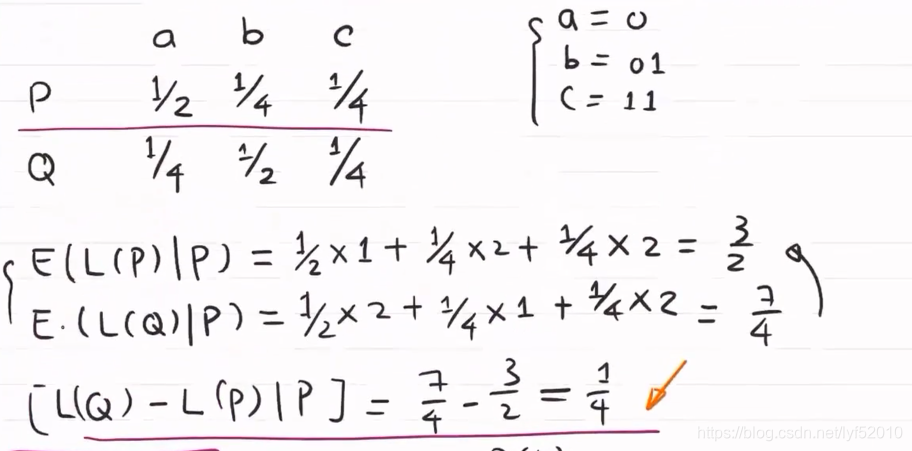 a b c
P 1/2 1/4 1/4
Q 1/4 1/2 1/4
a = 0
b = 01
c = 11
E(L(P)|P) = 1/2 × 1 + 1/4 × 2 + 1/4 × 2 = 3/2
E.(L(Q)|P) = 1/2 × 2 + 1/4 × 1 + 1/4 × 2 = 7/4
[L(Q) - L(P)|P] = 7/4 - 3/2 = 1/4
https://blog.csdn.net/lyf52010